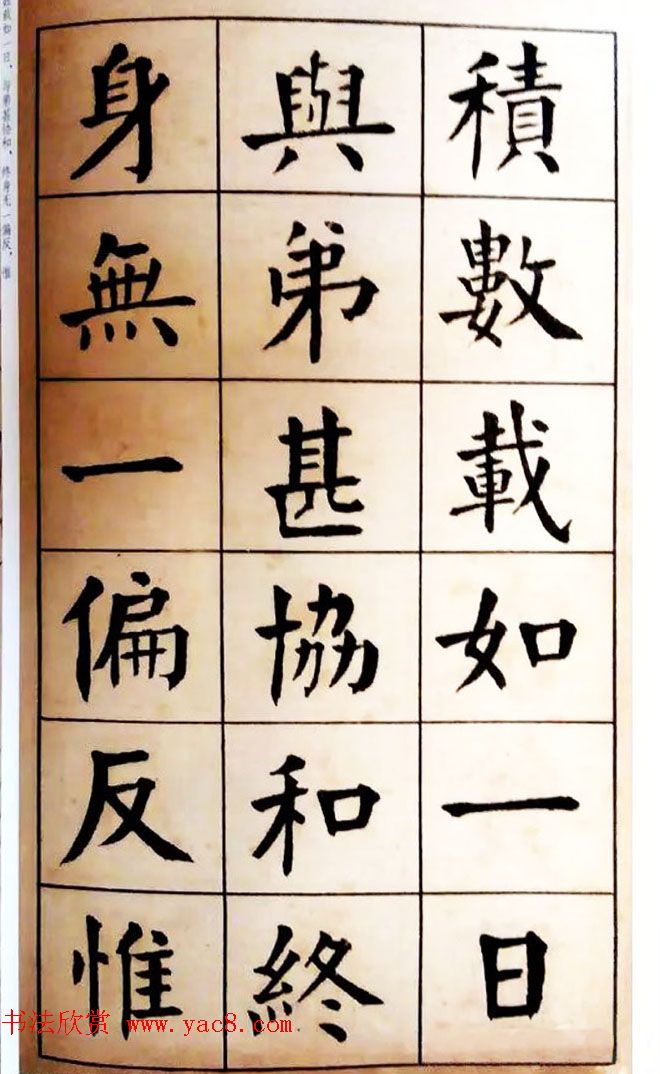 積數載如一日
與弟甚協和終
身無一偏反惟
积数载如一日，与弟甚协和，终身无一偏反，惟
书法欣赏 www.yac8.com